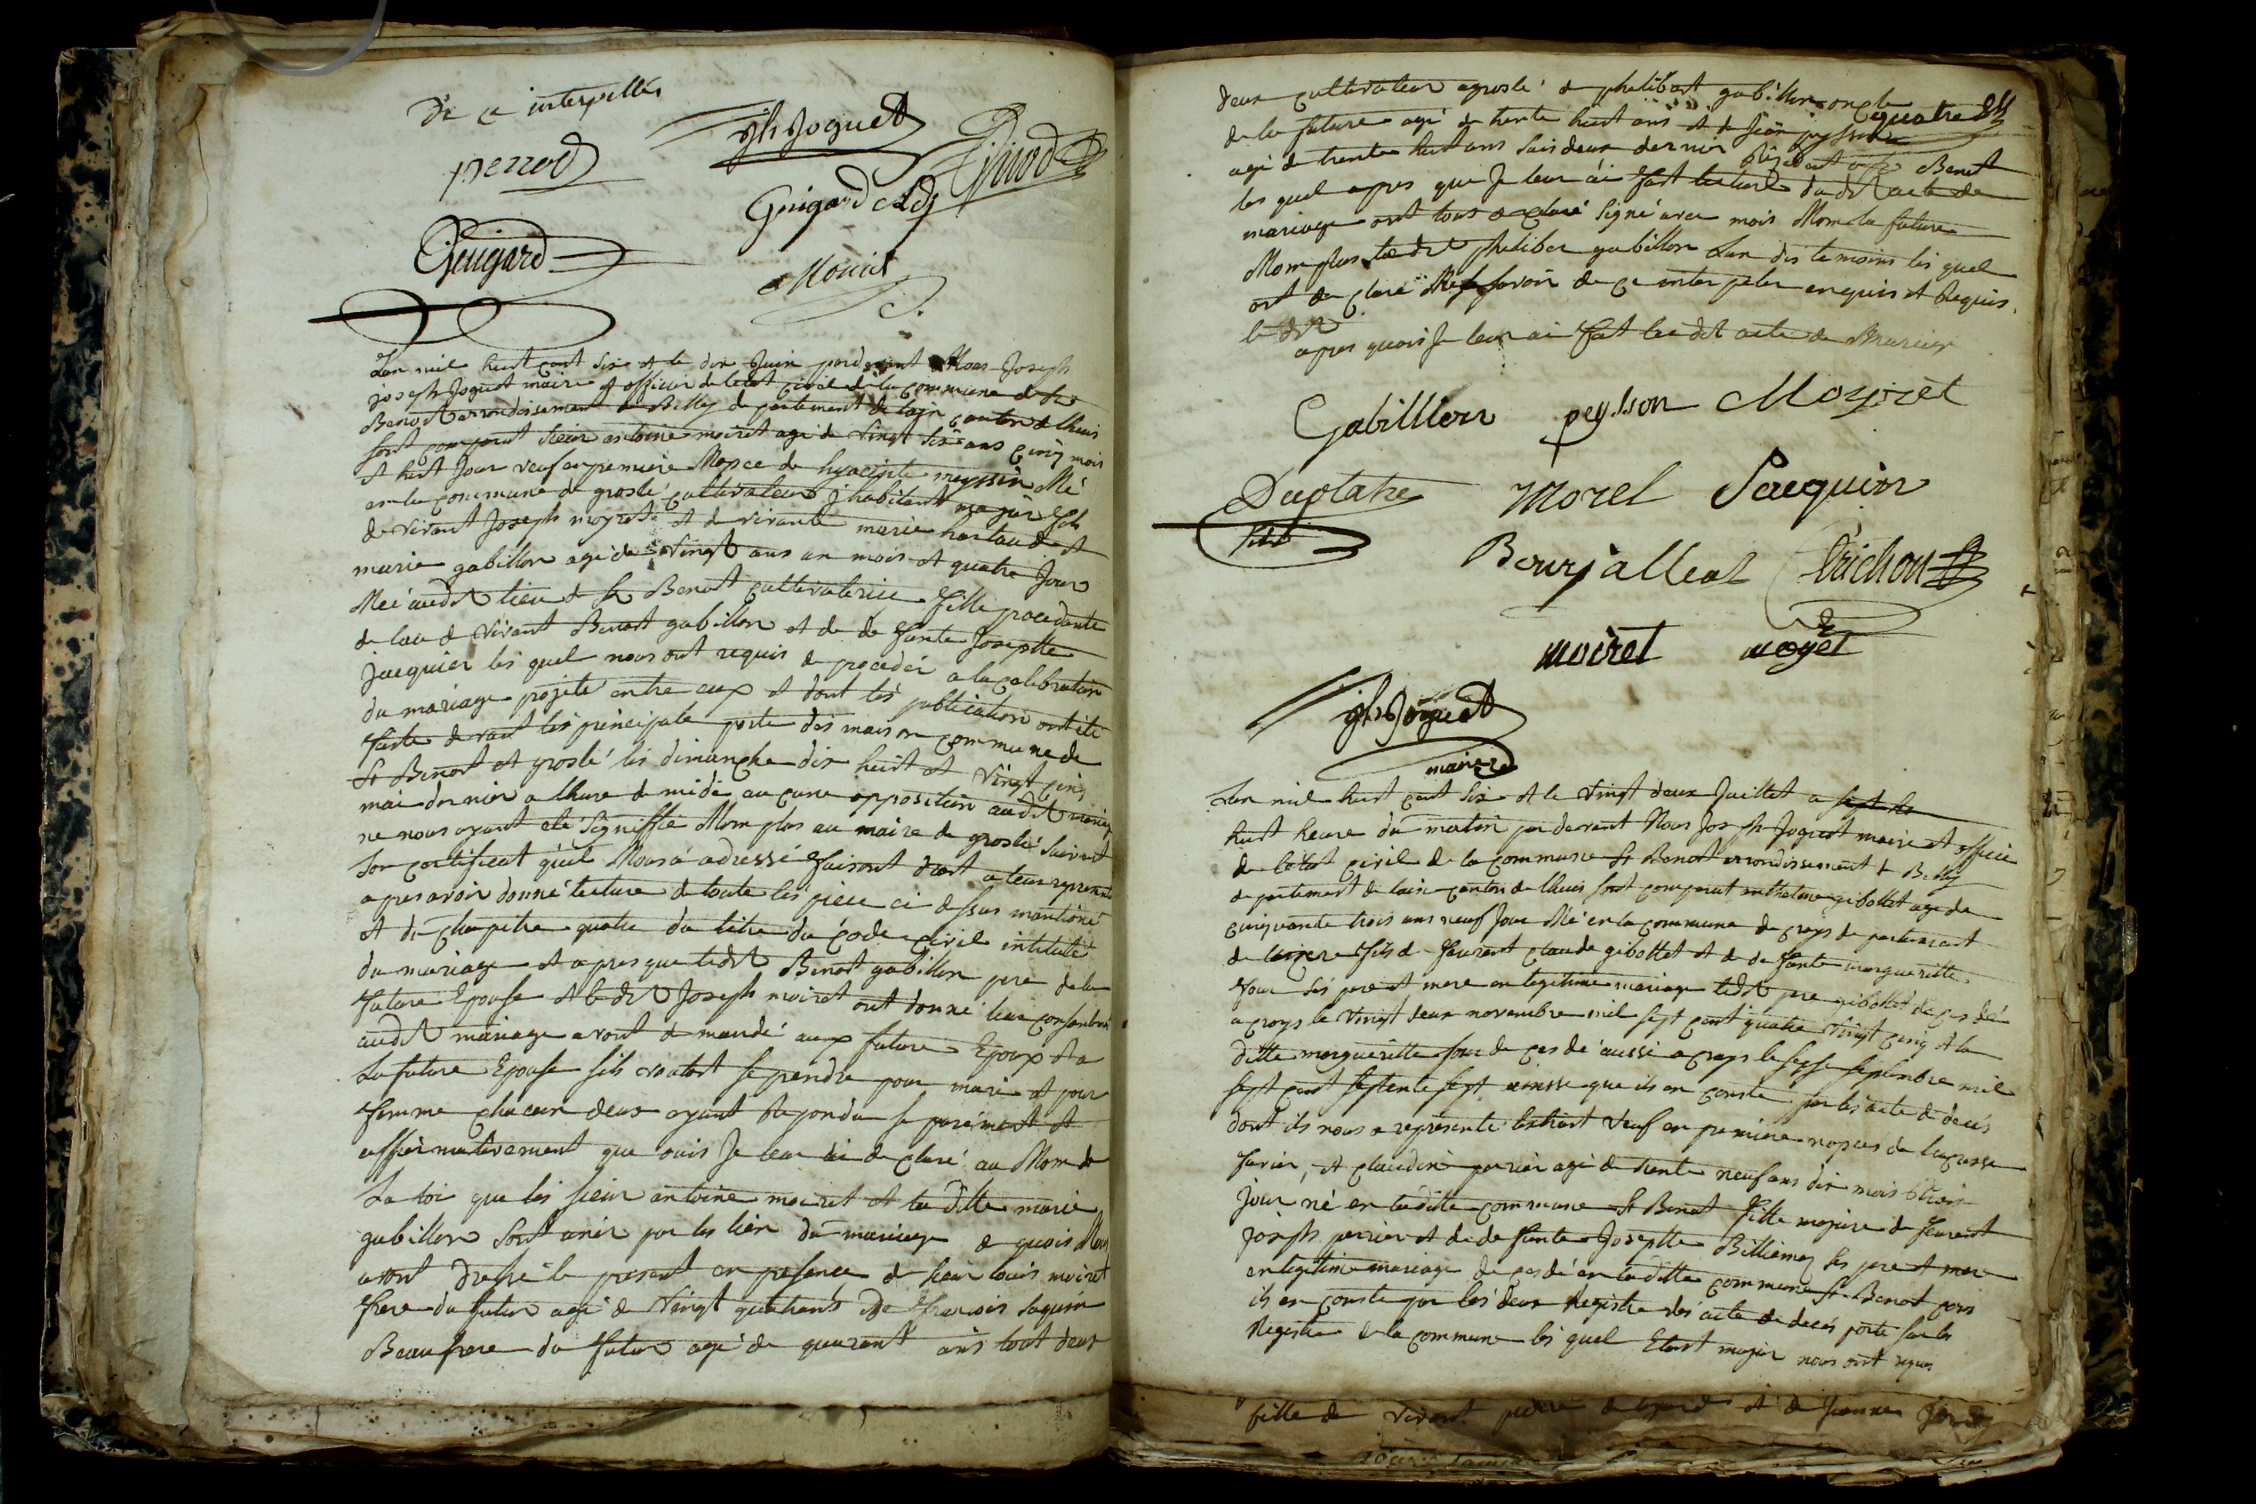 De ce interpellés
perrod
jh Joguet
Girod
Guigard
Guigard
Moiret
Lan mil huit cent Six et le dix Juin pardevant Nous Joseph
joseph Joguet maire et officier de letat civil de la commune de St
Benoit arrondissement de Belley departement de lain canton de lhuis
sont comparut Sieur antoine moiret agé de vingt Six ans cinq mois
et huit Jour veuf en premiere Nopce de hyacinte meyssin Né
en la commune de groslé cultivateur j habitant majeur fils
de vivant Joseph moyret et de vivante marie hortau et
marie gabillon agé de vingt ans un mois et quatre Jour
Née audit lieu de St Benoit cultivatrice fille procedante
de lau de vivant Benoit gabillon et de defunte Josephte
Jacquier les quel nous ont requis de proceder a la celebration
du mariage projeté entre eux et dont les publication ont été
faite devant les principale porte des maison commune de
St Benoit et groslé les dimanche dix huit et vingt cinq
mai dernier a lheure de midi aucune opposition audit mariage
ne nous ayant été Signiffié Nom plus au maire de groslé Suivant
Son certificat quil Nous a adressé faisant droit a leur
apres avoir donné lecture de toute les piece ci dessus mantioné
et du chapitre quatre du titre du code civil intitulé
du mariage et apres que ledit Benoit gabillon pere de la
future Epouse et ledit Joseph moiret ont donné leur consentmt
audit mariage avont demandé aux future Epoux et a
La future Epouse sils voulait se prendre pour marie et pour
femme chacun deux ayant Repondu separément et
affirmativement que ouis Je leur ai declaré au Nom de
La loi que les Sieur antoine moiret et ladite marie
gabillon sont unis par les lien du mariage de quois Nous
avont dressé le present en presence de Sieur louis moiret
frere du futur agé de vingt quatre ans De francois Jaquin
Beaufrere du futur agé de quarent ans tout deux
deux cultivateur agroslé de philibert gabillon oncle
quatre
de la future agé de trente huit ans et de Jean peysson
agé de trente huit ans Saisdeux dernier Résidant a St Benoit
les quel apres que Je leur ai fait lecture du dit acte de
mariage ont tous declaré Signé avec mois Nom la future
Nom plus ledit philiber gabillon Lun des temoins les quel
ont declaré Ne savoir de ce interpeler enquis et Requis
le dit
apres quois Je leur ai fait led dit acte de Mariage
Gabillion peysson Moyret
Duplatre
fils
Morel Jacquin
Bourjalleat Trichon
moiret moyet
jh Joguet
maire
Lan mil huit cent Six et le vingt deux Juillet a sept he
huit heure du matin par devant Nous Joseph Joguet maire et officié
de letat civil de la commune St Benoit arrondissement de Belley
departement de lain canton de lhuis sont comparut anthelme gibollet agé de
cinquante trois ans neuf Jour Né en la commune de creys departemant
de lisere fils de feurent claude gibollet et de defunte marguerite
four Sés pere et mere en legitime mariage ledit pere gibollet decesdé
a creys le vingt deux novembre mil sept cent quatre vingt cinq et la
ditte marguerite four decesdé aussi a creys le seize septembre mil
sept cent septente sept ainsse que ils en conste par les acte de decés
dont ils nous a representé lextrait veuf en premiere nopces de
favier, et claudine perrier agé de trente neuf ans dix mois
Jour né en laditte commune St Benoit fille majeure de feurent
joseph perrier et de defunte Josephte Billiemaz ses pere et mere
en legitime mariage decesdé en laditte commune St Benoit com
ils en conste par les deux Registre des acte de decés porté sur les
Registre de la commune les quel Etant majeur nous ont requi
fille de vivant piere et de Jeanne